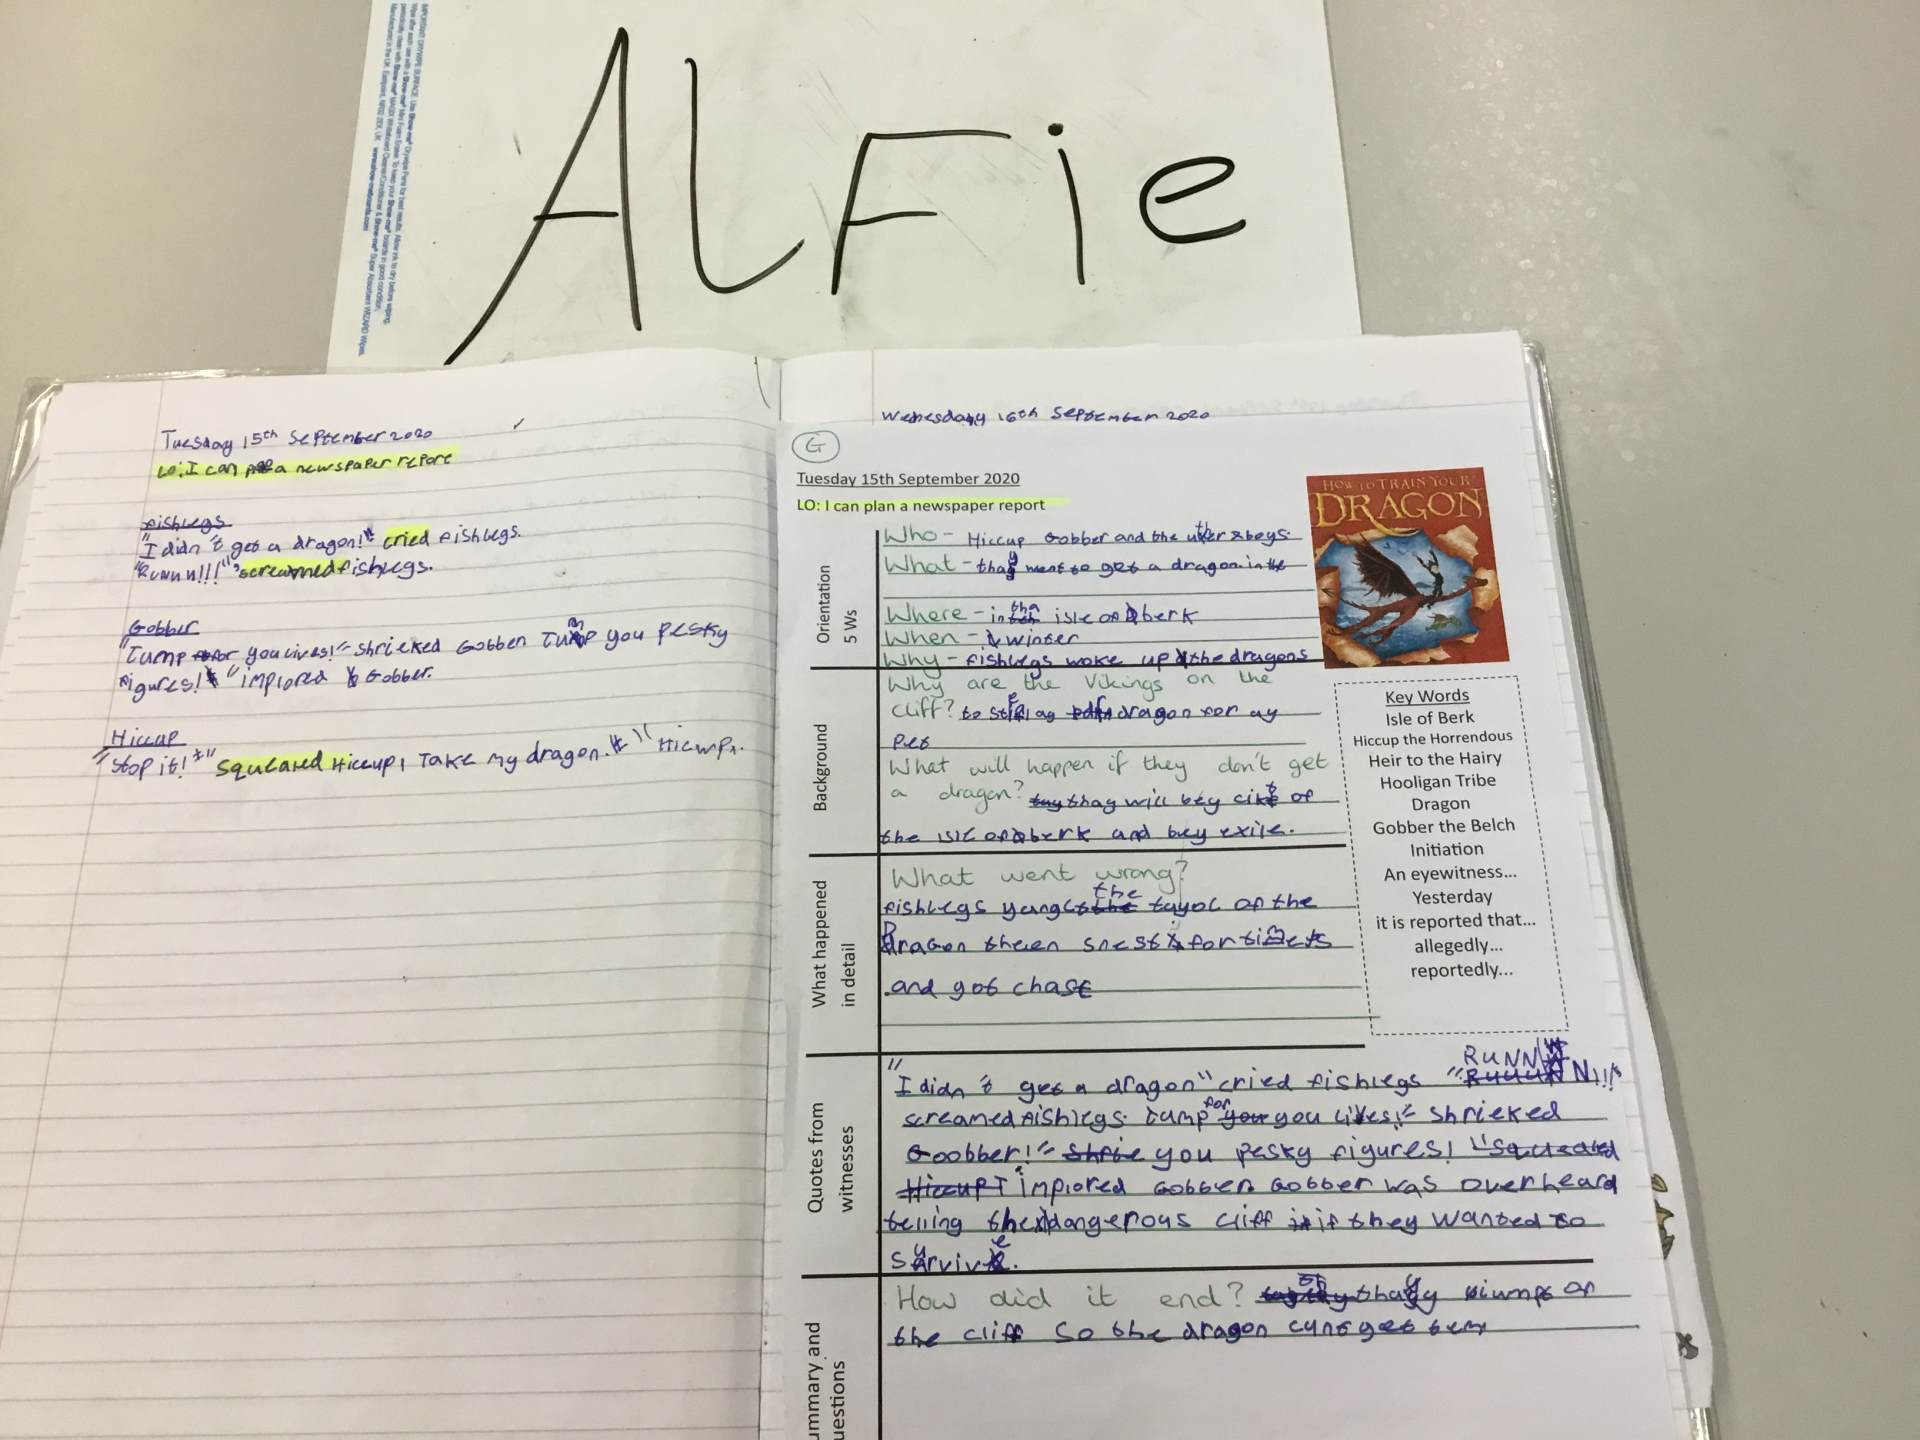 ALFie
Tuesday 15th September 2020
LO: I can a newspaper report
Fishlegs
"I didn't get a dragon!" cried Fishlegs.
"Runnn!!!" screamed fishlegs.
Gobber
"Jump for you lives!" shrieked Gobber Jump you pesky
figures! "implored Gobber.
Hiccup
"Stop it!" squleaked Hiccup, Take my dragon."
Wenesday 16th September 2020
G
Tuesday 15th September 2020
LO: I can plan a newspaper report
HOW TO TRAIN YOUR
DRAGON
Orientation
5 Ws
Who - Hiccup Gobber and the uther boys
What - thay went to get a dragon in the
Where - in tha isle of berk
When - winter
Why - fishlegs woke up the dragons
Background
Why are the Vikings on the
cliff? to a dragon for ay
Pet
What will happen if they don't get
a dragon? thay will bey cikt of
the isle of berk and bey exile.
What happened
in detail
What went wrong?
fishlegs the tayol of the
Dragon
and got chase
Quotes from
witnesses
"I didn't get a dragon" cried fishlegs "RUNNN!!!"
screamed fishlegs. Jump for you lives!" shrieked
Goobber!" you pesky figures!
implored Gobber. Gobber was overheard
telling the dangerous cliff if they wanted to
survive.
ummary and
uestions
How did it end? thay jumpt of
the cliff so the dragon cunt get tem
Key Words
Isle of Berk
Hiccup the Horrendous
Heir to the Hairy
Hooligan Tribe
Dragon
Gobber the Belch
Initiation
An eyewitness...
Yesterday
it is reported that...
allegedly...
reportedly...